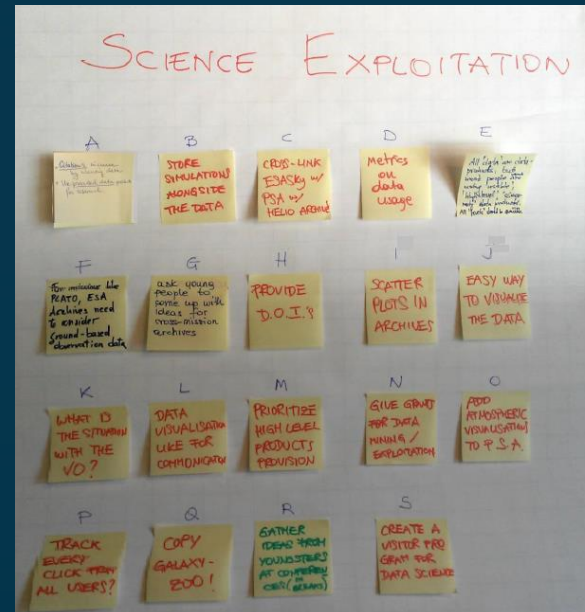 SCIENCE EXPLOITATION
A
by
B
STORE
SIMULATIONS
ALONGSIDE
THE DATA
C
CROSS-LINK
ESASKY w/
PSA w/
HELIO ARCHIVE
D
Metrics
on
data
usage
E
All
data
products, but
people
F
For missions like
PLATO, ESA
Archives need
to consider
Ground-based
observation data
G
ask young
people to
come up with
ideas for
cross-mission
archives
H
PROVIDE
D.O.I.s
I
SCATTER
PLOTS IN
ARCHIVES
J
EASY WAY
TO VISUALISE
THE DATA
K
WHAT IS
THE SITUATION
WITH THE
VO?
L
DATA
VISUALISATION
LIKE FOR
COMMUNICATION
M
PRIORITIZE
HIGH LEVEL
PRODUCTS
PROVISION
N
GIVE GRANTS
FOR DATA
MINING /
EXPLOITATION
O
ADD
ATMOSPHERIC
VISUALISATIONS
TO P.S.A.
P
TRACK
EVERY
CLICK FROM
ALL USERS?
Q
COPY
GALAXY-
ZOO!
R
GATHER
IDEAS FROM
YOUNGSTERS
AT
S
CREATE A
VISITOR PRO
GRAM FOR
DATA SCIENCE